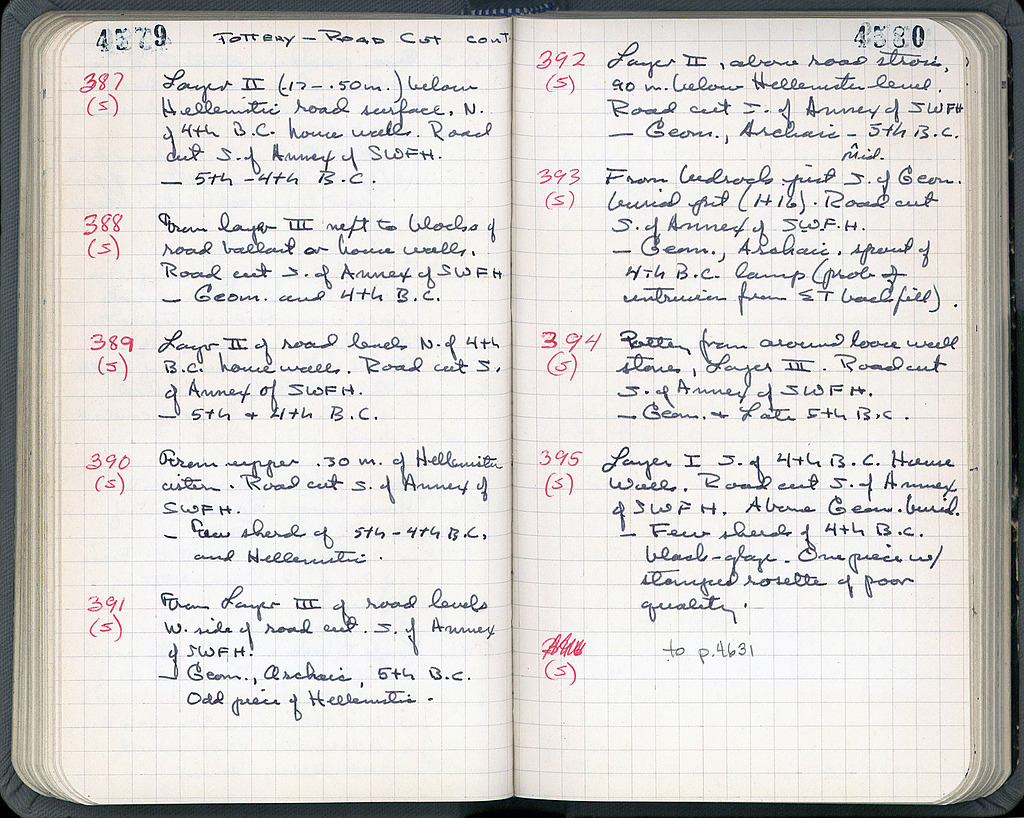 4579
POTTERY - ROAD CUT CONT.
387 Layer II (.17-.50m.) below
(5) Hellenistic road surface, N.
of 4th B.C. house walls. Road
cut S. of Annex of SWFH.
- 5th - 4th B.C.
388 From layer III next to blocks of
(5) road ballast or house walls.
Road cut S. of Annex of SWFH
- Geom. and 4th B.C.
389 Layer II of road levels N. of 4th
(5) B.C. house walls. Road cut S.
of Annex of SWFH.
- 5th + 4th B.C.
390 From upper .30 m. of Hellenistic
(5) cistern. Road cut S. of Annex of
SWFH.
- Few sherds of 5th - 4th B.C.
and Hellenistic.
391 From Layer III of road levels
(5) W. side of road cut. S. of Annex
of SWFH.
- Geom., Archaic, 5th B.C.
Odd piece of Hellenistic.
4580
392 Layer II, above road stros.,
(5) .90 m. below Hellenistic level.
Road cut S. of Annex of SWFH
- Geom., Archaic - 5th B.C.
mid.
393 From bedrock just S. of Geom.
(5) burial pit (H16). Road cut
S. of Annex of SW.F.H.
- Geom., Archaic, spout of
4th B.C. lamp (prob. of
intrusion from ST backfill).
394 Pottery from around loose wall
(5) stones, Layer III. Road cut
S. of Annex of SWFH.
- Geom. + Late 5th B.C.
395 Layer I S. of 4th B.C. House
(5) Walls. Road cut S. of Annex
of SWFH. Above Geom. burial.
- Few sherds of 4th B.C.
black-glaze. One piece w/
stamped rosette of poor
quality.
to p.4631
(5)